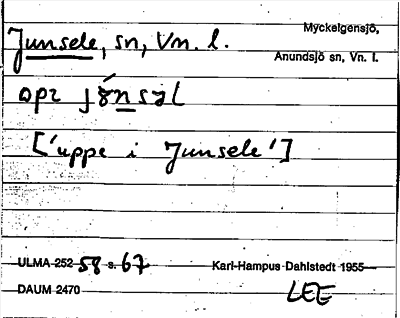 Myckelgensjö,
Junsele, sn, Vn. l.
Anundsjö sn, Vn. l.
opr
['uppe i Junsele']
ULMA 252 58 s. 67
Karl-Hampus Dahlstedt 1955
DAUM 2470
LEE